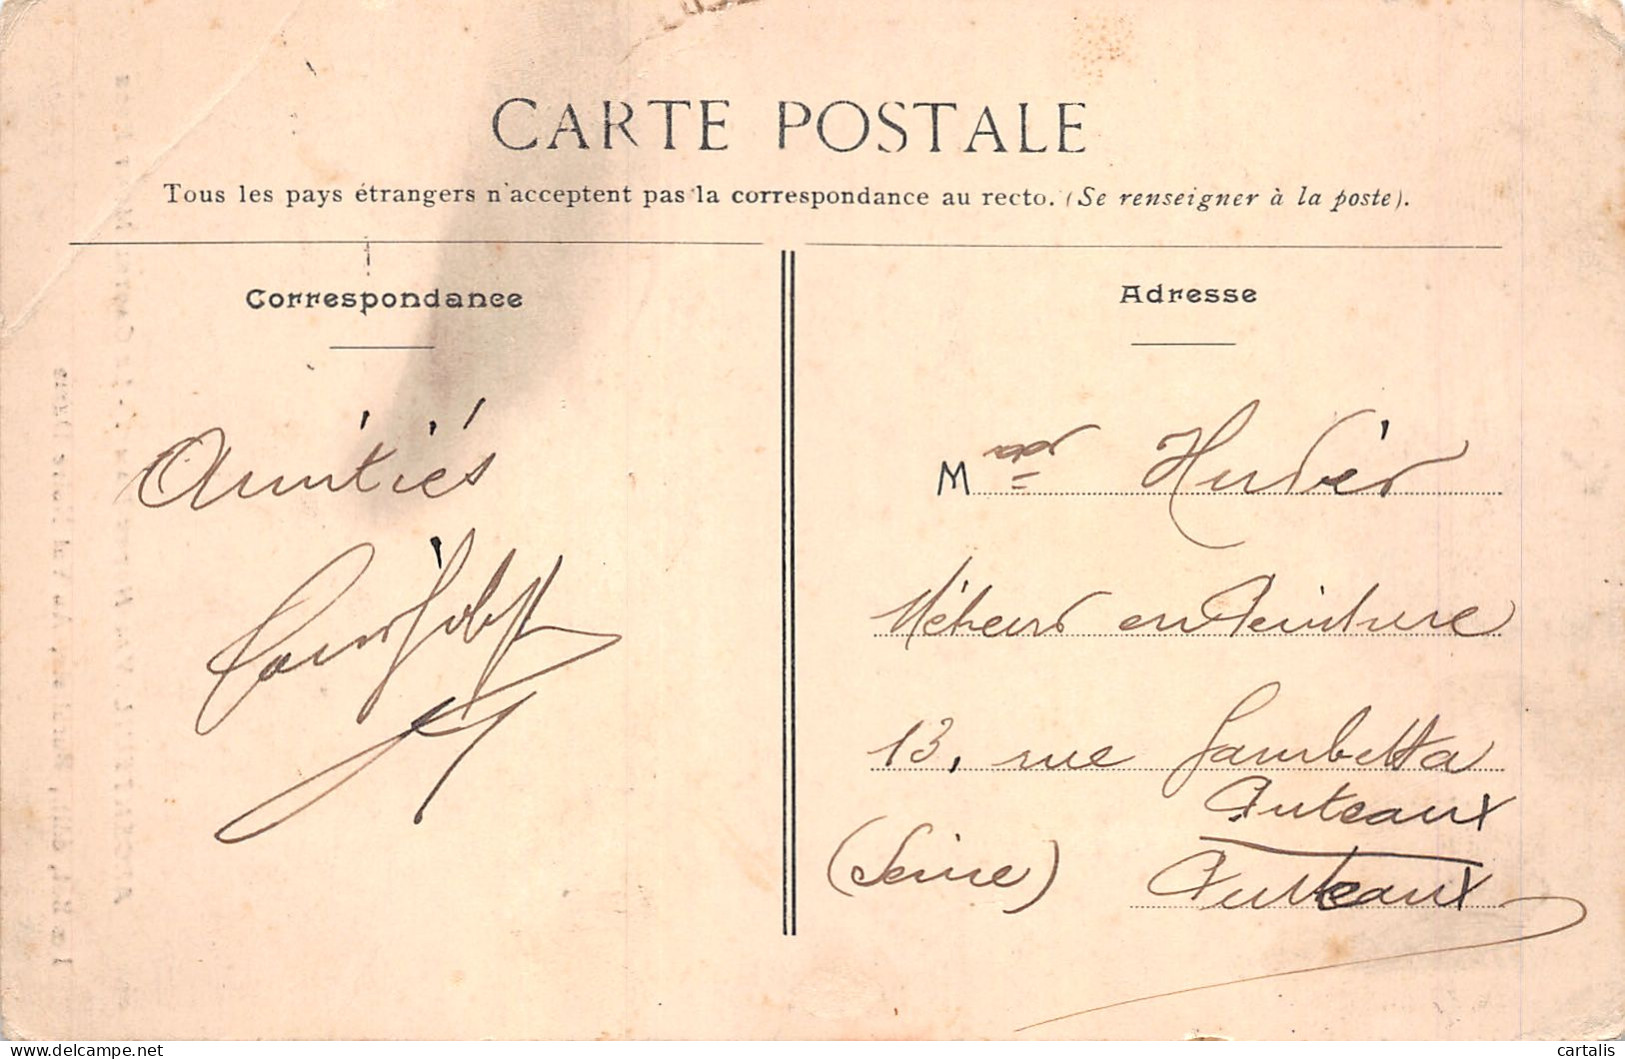 CARTE POSTALE
Tous les pays étrangers n'acceptent pas la correspondance au recto. (Se renseigner à la poste).
Correspondance
Amitiés
Adresse
M
en Teinture
13, rue Gambetta
Puteaux
(Seine) Puteaux
delcampe.net
cartalis